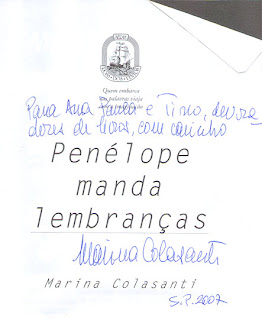 Quem embarca
em palavras viaja
Para Ana Paula e Tino, devora
dores de livros, com carinho
Penélope
manda
lembranças
Marina Colasanti
Marina Colasanti
S.P. 2007